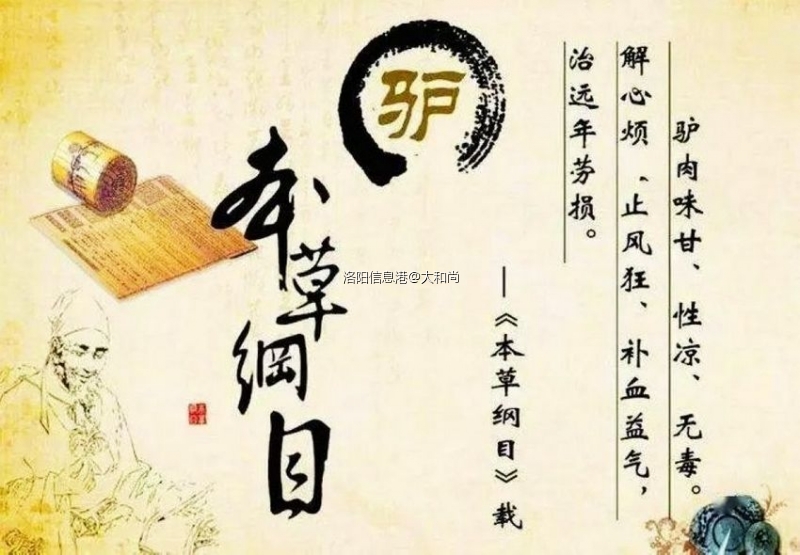 驴肉味甘、性凉、无毒。
解心烦、止风狂、补血益气，
治远年劳损。
—《本草纲目》载
驴
本草纲目
洛阳信息港@大和尚